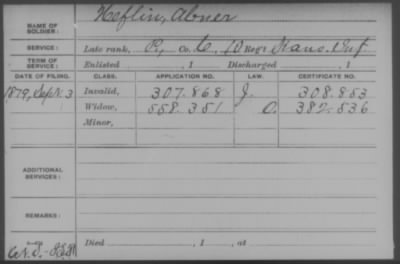 Heflin, Abner
NAME OF SOLDIER:
SERVICE: Late rank, Co. C, 10 Reg't Kans. Inf
TERM OF SERVICE: Enlisted , 1 Discharged , 1
DATE OF FILING. CLASS. APPLICATION NO. LAW. CERTIFICATE NO.
1879, Sept. 3 Invalid, 307.868 J. 308.853
Widow, 558.351 O. 382.536
Minor,
ADDITIONAL SERVICES:
REMARKS:
Died , 1 , at